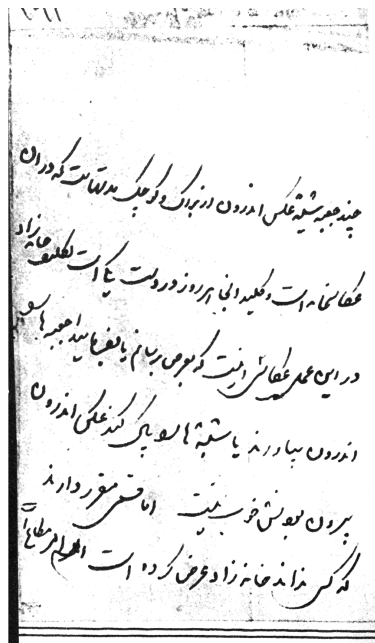 چند جعبه شیشهٔ عکس اندرون از بزرگ و کوچک مدتهاست که در آن
عکاسخانه است و کلید آنجا هر روز در دست یکی است تکلیف خانه‌زاد
در این عمل عکاسی اینست که بعرض برسانم یا بفرمایید جعبه‌ها را
اندرون بیاورند یا شیشه‌ها را پاک کنند عکس اندرون
بیرون بودنش خوب نیست اما قسمی مقرر دارند
که کس نداند خانه‌زاد عرض کرده است امر مطاع